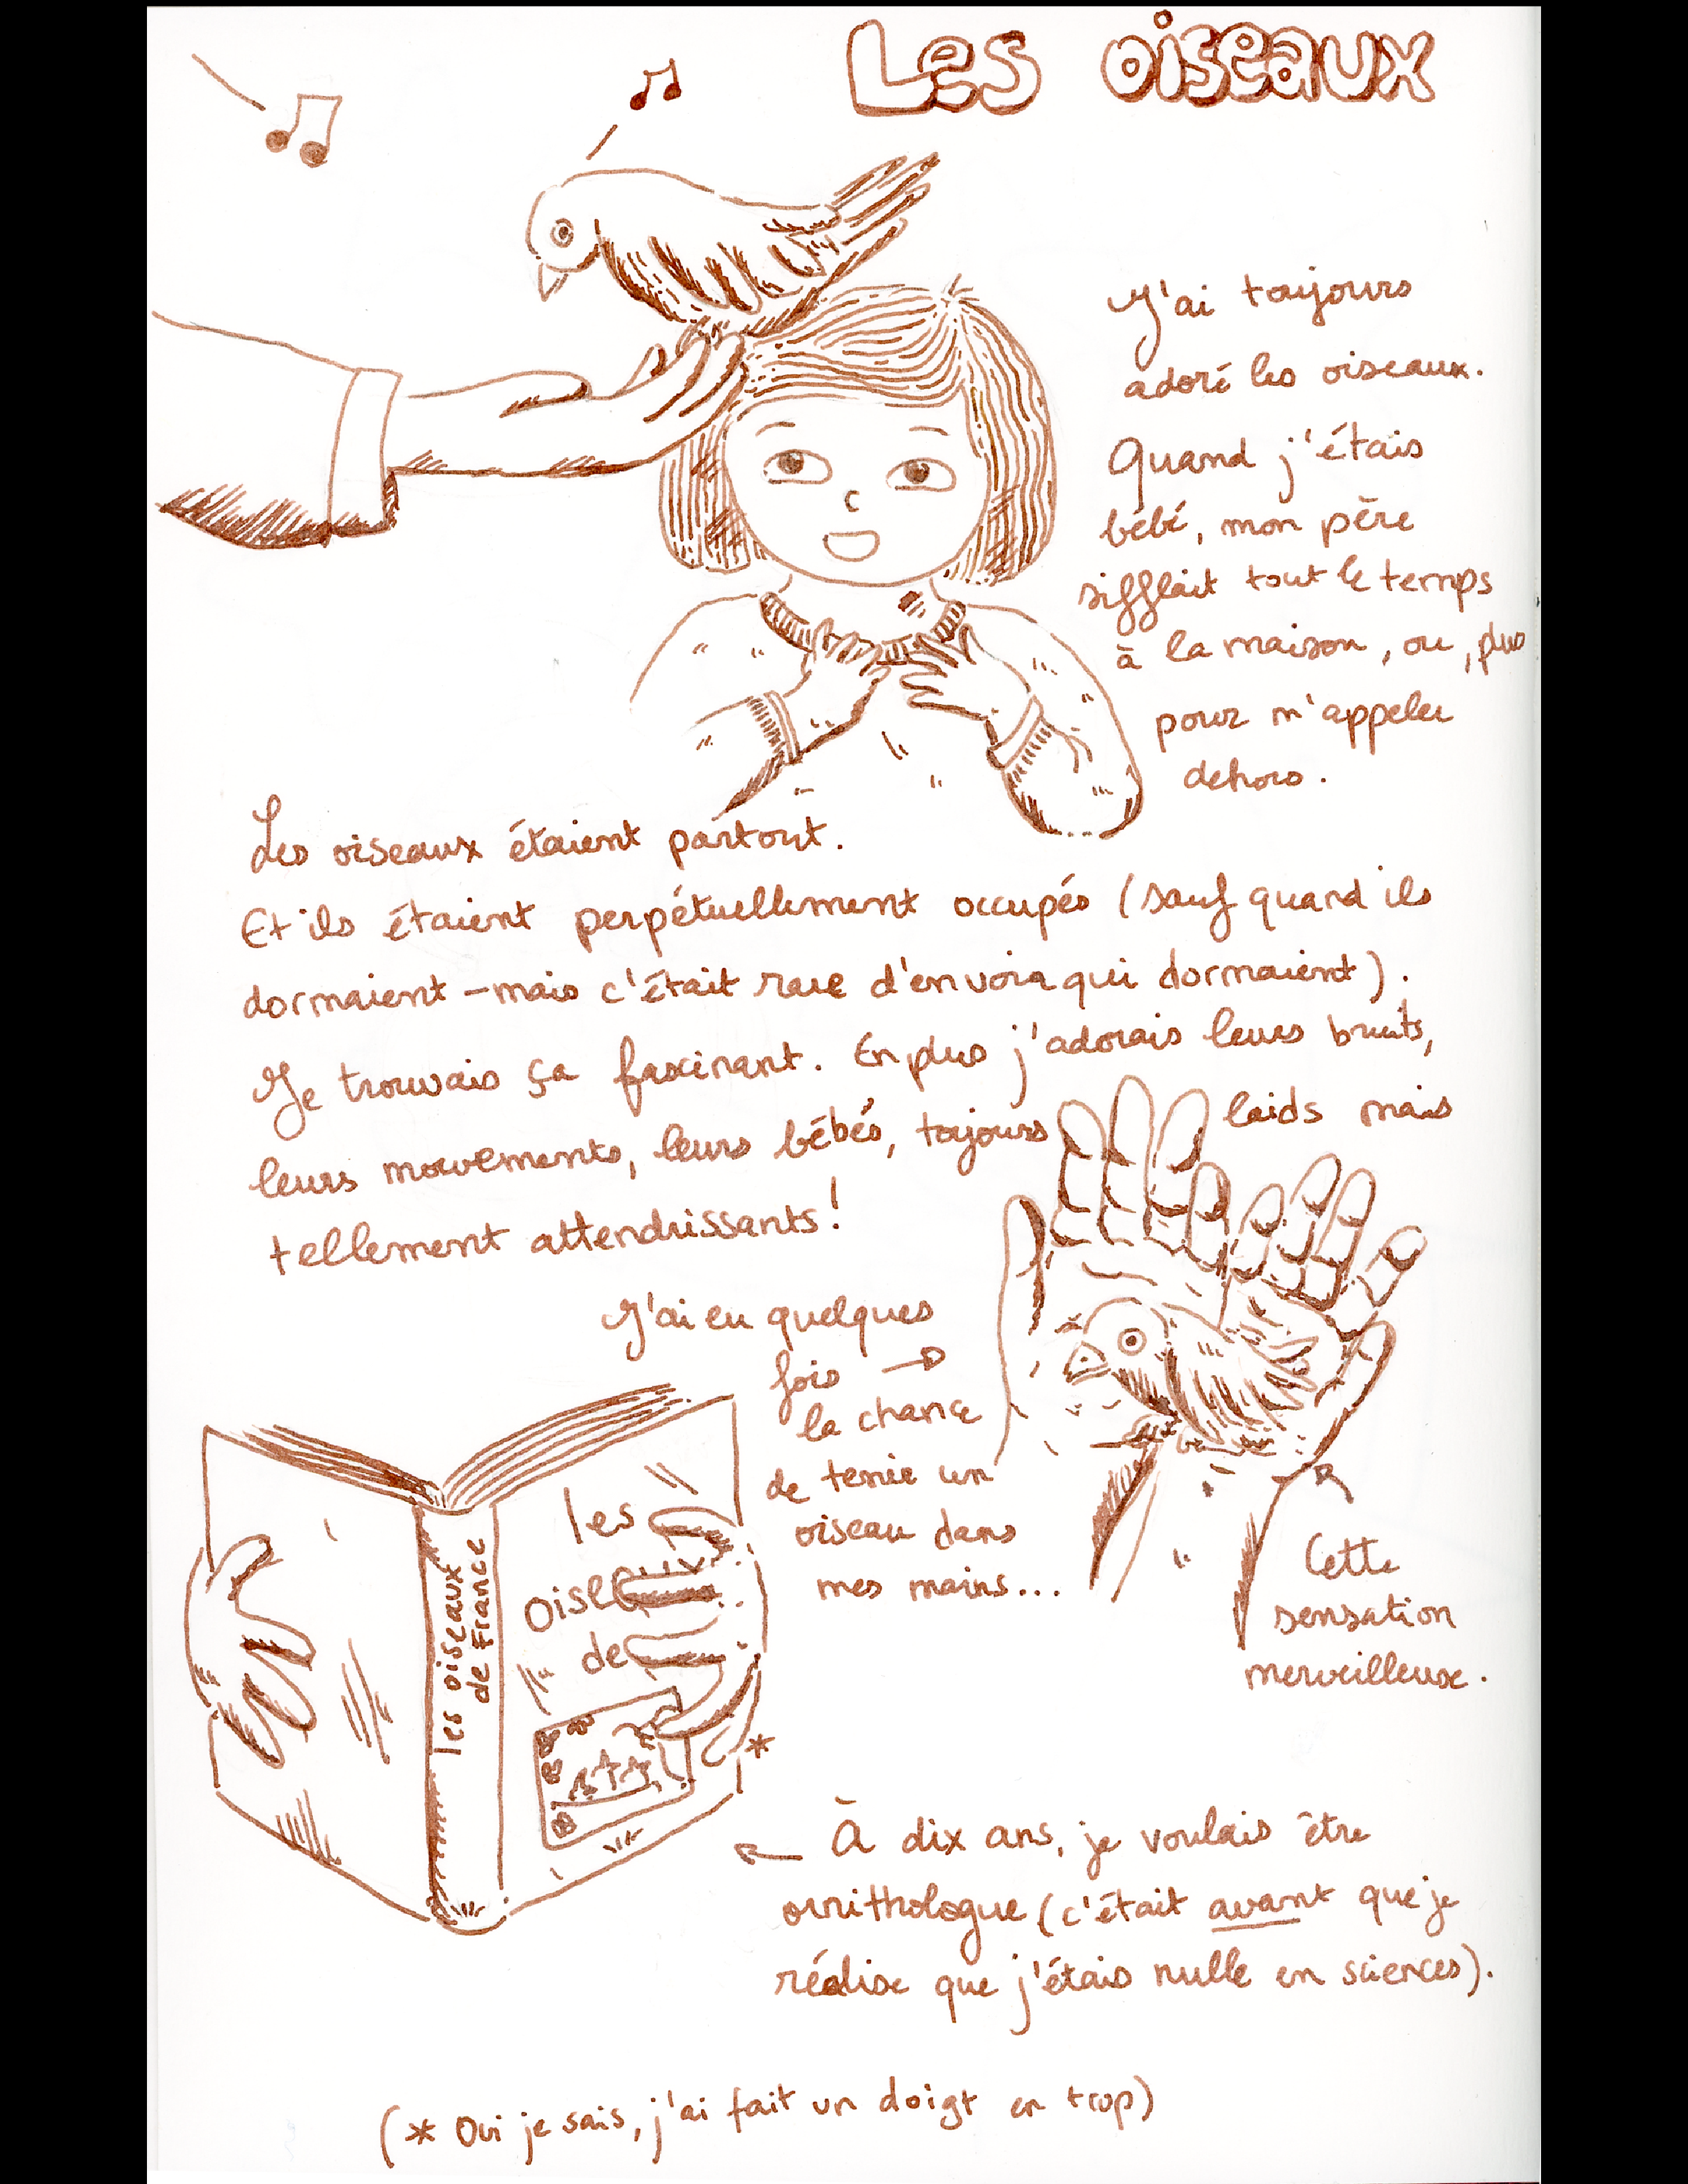 Les oiseaux
J'ai toujours
adoré les oiseaux.
Quand j'étais
bébé, mon père
sifflait tout le temps
à la maison, ou, plus
pour m'appeler
dehors.
Les oiseaux étaient partout.
Et ils étaient perpétuellement occupés (sauf quand ils
dormaient – mais c'était rare d'en voir qui dormaient).
Je trouvais ça fascinant. En plus j'adorais leurs bruits,
leurs mouvements, leurs bébés, toujours laids mais
tellement attendrissants!
J'ai eu quelques
fois →
la chance
de tenir un
oiseau dans
mes mains...
Cette
sensation
merveilleuse.
les oiseaux
de France
les
oise
de
*
← À dix ans, je voulais être
ornithologue (c'était avant que je
réalise que j'étais nulle en sciences).
(* Oui je sais, j'ai fait un doigt en trop)